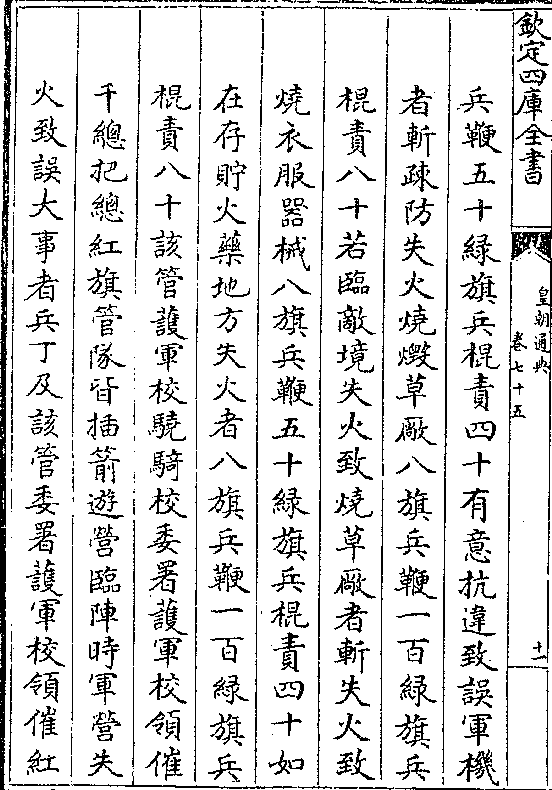 欽定四庫全書
皇朝通典
卷七十五
十一
兵鞭五十緑旗兵棍責四十有意抗違致誤軍機
者斬疎防失火燒燬草厰八旗兵鞭一百緑旗兵
棍責八十若臨敵境失火致燒草厰者斬失火致
燒衣服器械八旗兵鞭五十緑旗兵棍責四十如
在存貯火藥地方失火者八旗兵鞭一百緑旗兵
棍責八十該管護軍校驍騎校委署護軍校領催
千總把總紅旗管隊皆插箭遊營臨陣時軍營失
火致誤大事者兵丁及該管委署護軍校領催紅